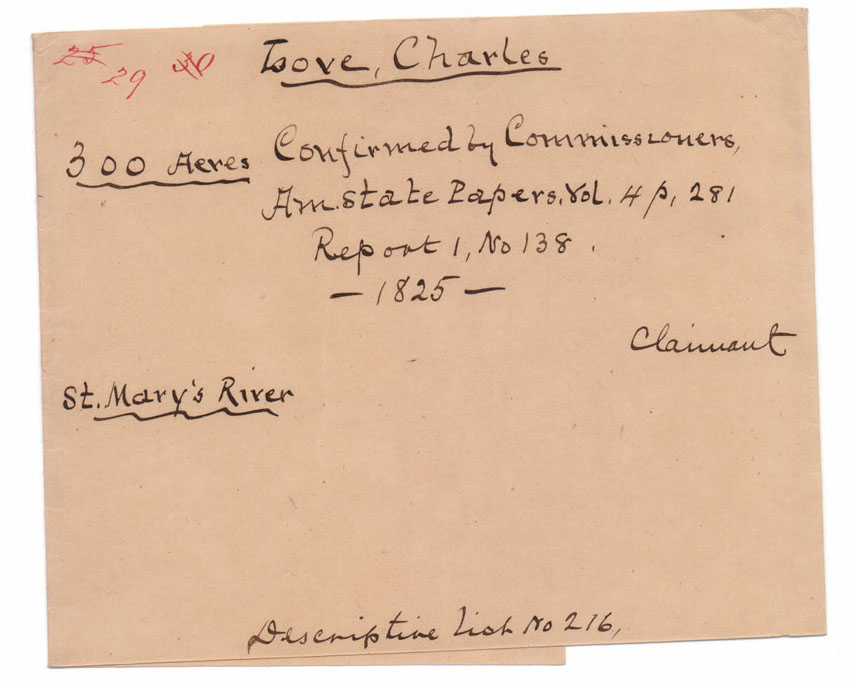 25 29 30
Love, Charles
300 Acres Confirmed by Commissioners,
Am. State Papers. Vol. 4 p, 281
Report 1, No 138.
— 1825 —
Claimant
St. Mary's River
Descriptive List No 216,